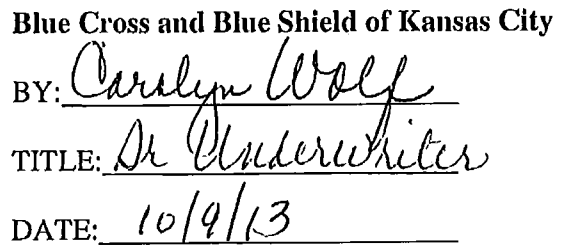 Blue Cross and Blue Shield of Kansas City
BY: Carolyn Wolf
TITLE: Sr Underwriter
DATE: 10/9/13